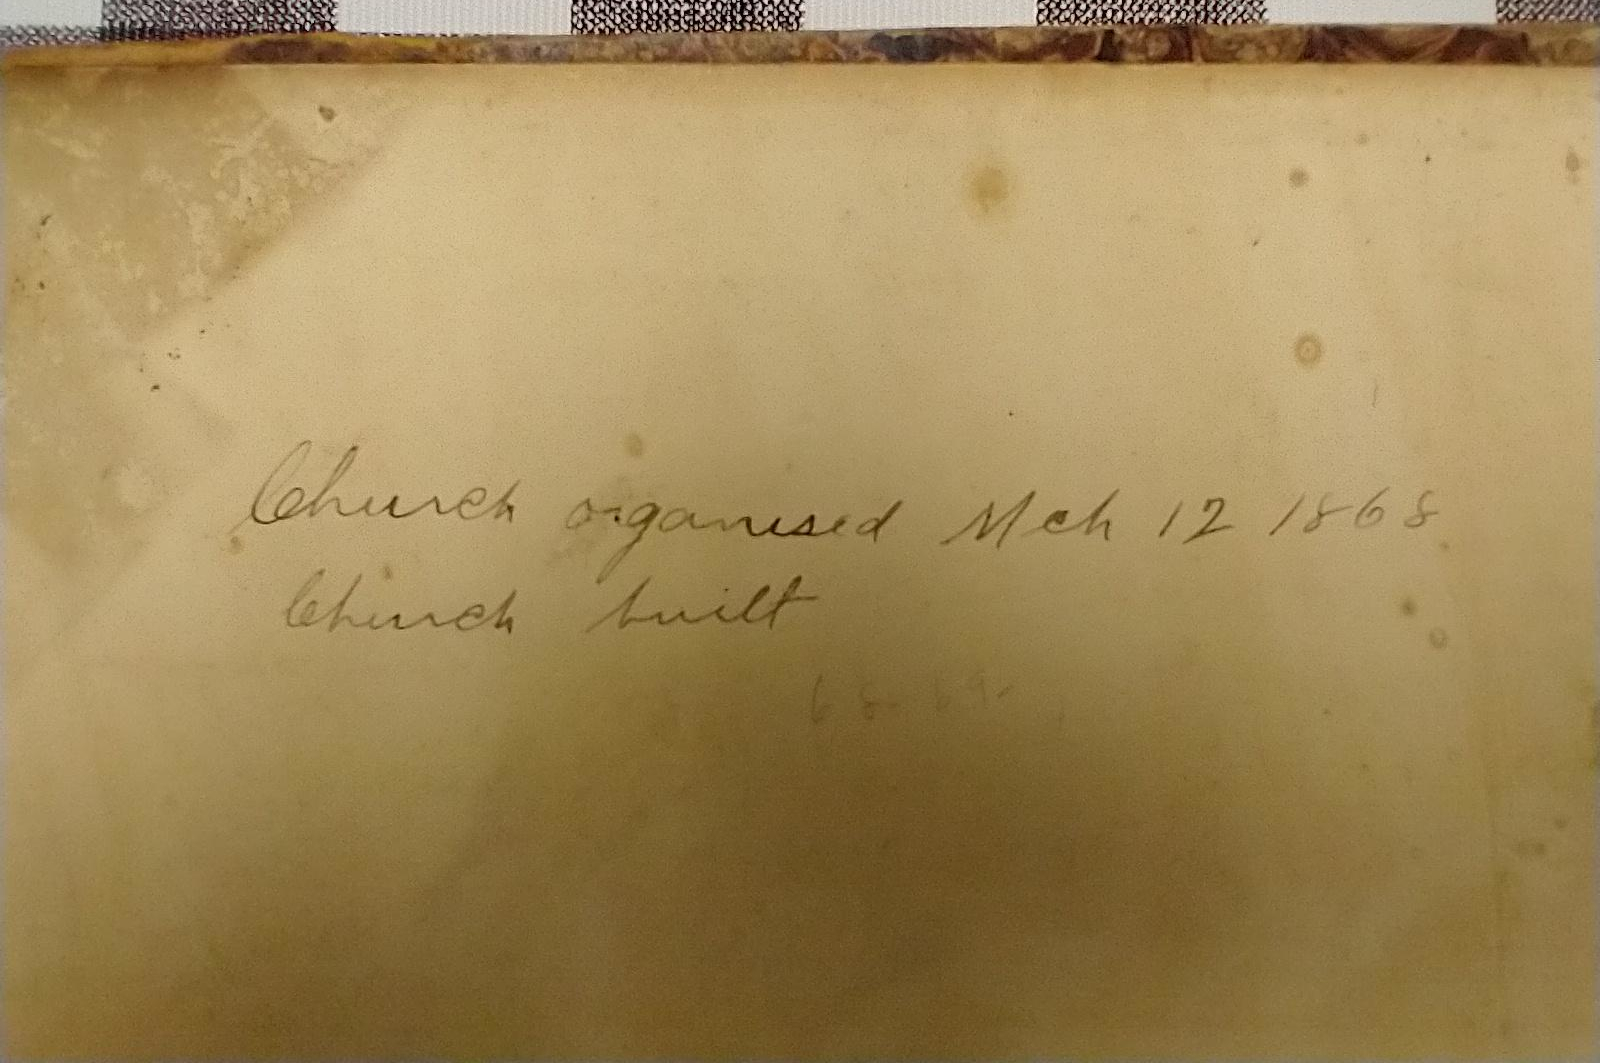 Church organised Mch 12 1868
Church built
68-69-